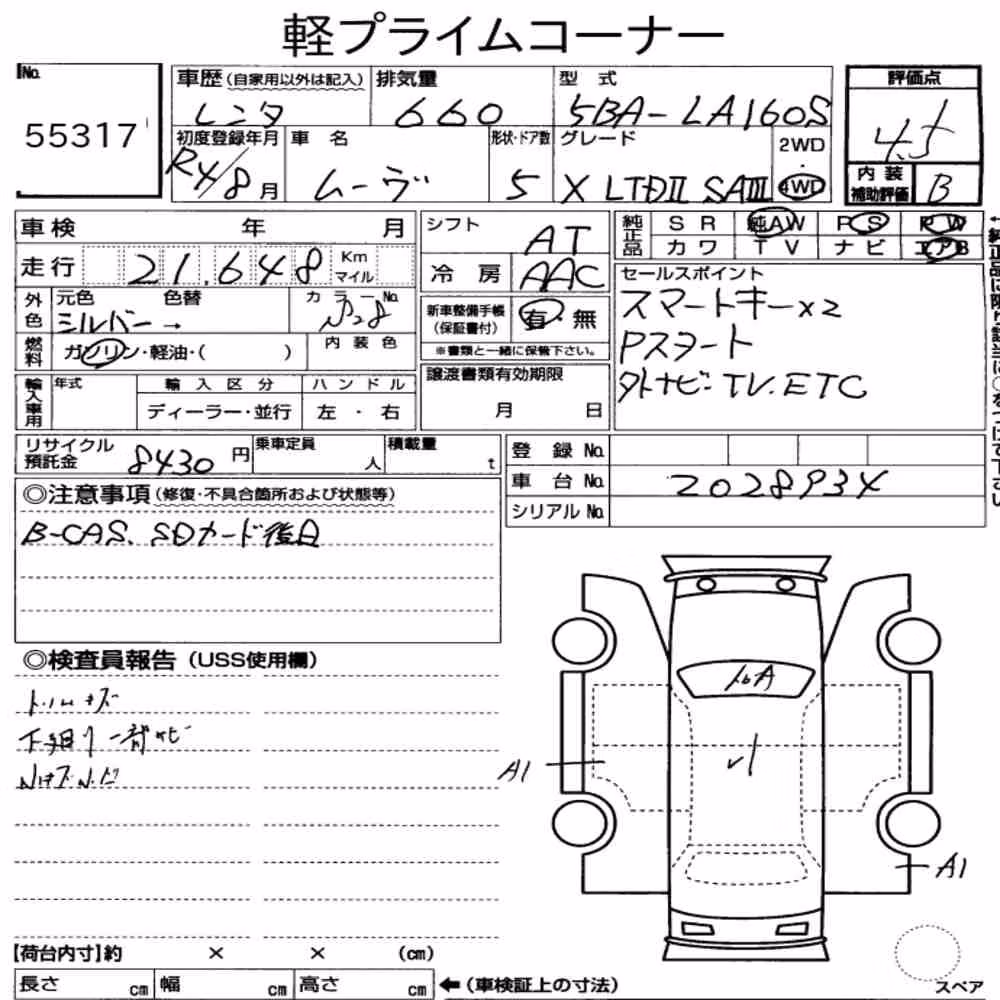 軽プライムコーナー
No. 55317
車歴 (自家用以外は記入) レンタ
排気量 660
型式 5BA-LA160S
評価点 4.5
初度登録年月 R4/8月
車名 ムーヴ
形状・ドア数 5
グレード X LTDⅡ SAⅢ
2WD・4WD
内装補助評価 B
車検 年 月
走行 21,648 Km マイル
シフト AT
冷房 AAC
純正品 SR 純AW PS PW
カワ TV ナビ エアB
外色 元色 色替 シルバー→
カラーNo. S28
新車整備手帳 (保証書付) 有・無
※書類と一緒に保管下さい。
セールスポイント
スマートキーx2
Pスタート
外ナビ・TV.ETC
燃料 ガソリン・軽油・( )
内装色
輸入車用 年式 輸入区分 ハンドル
ディーラー・並行 左・右
譲渡書類有効期限
月 日
リサイクル預託金 8430円
乗車定員 人
積載量 t
登録No.
車台No. 2028934
シリアルNo.
◎注意事項 (修復・不具合箇所および状態等)
B-CAS、SDカード後日
◎検査員報告 (USS使用欄)
下廻り一部サビ
A1
A1
【荷台内寸】約 × × (cm)
長さ cm 幅 cm 高さ cm
←(車検証上の寸法)
スペア